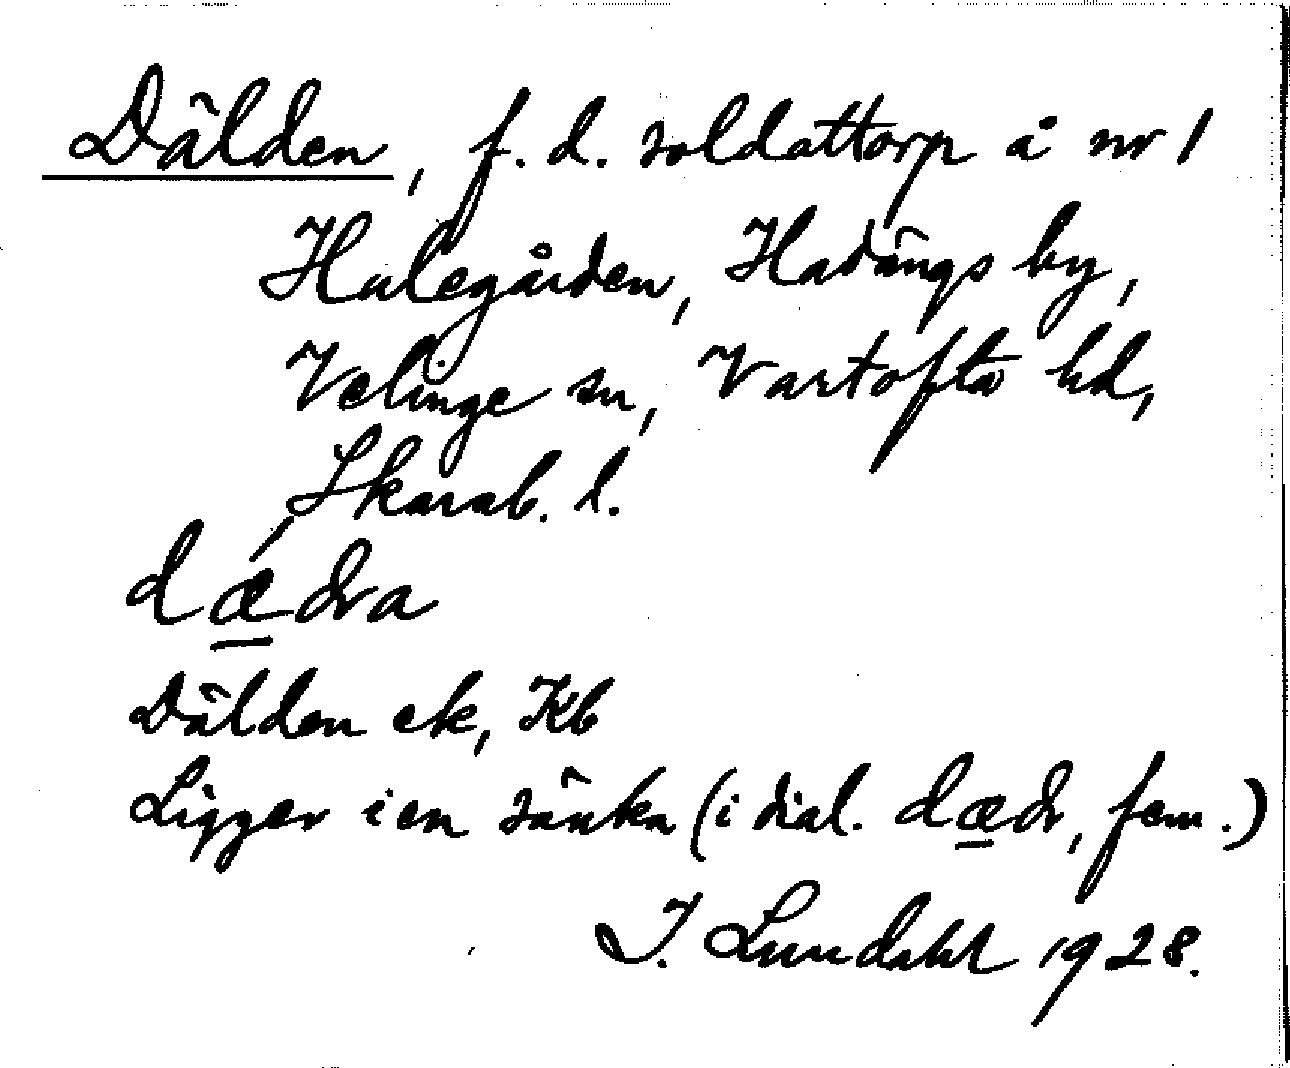 Dälden, f. d. soldattorp å nr 1
Halegården, Havängs by,
Velinge sn, Vartofta hd,
Skarab. l.
dædra
Dälden ek, Kb
Ligger i en sänka (i dial. dædr, fem.)
I. Lundahl 1928.